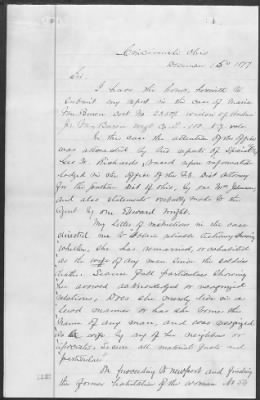 Cincinnati Ohio
December 15th 1877
Sir.
I have the honor, herewith to
submit my report in the case of Maria
Van Buren Cert. No. widow of
Van Buren
In this case the attention of the Office
was attracted by the reports of Special
Geo. H. Richards, based upon information
lodged in the Office of the U.S. Dist Attorney
for the Southern Dist of Ohio, by one Wm Johnson,
and also statements verbally made to the
Agent by one Edward Wright.
My letter of instructions in the case
directed me to obtain reliable testimony showing
whether, she has remarried, or cohabited
as the wife of any man since the soldiers
death. Secure full particulars showing
her avowed acknowledged or recognized
relations, Does she merely live in a
lewd manner or has she borne the
name of any man, and was recognized
as his wife by any of her neighbors or
associates. Secure all material facts and
"particulars"
On proceeding to Newport and finding
the former habitation of the woman No 54